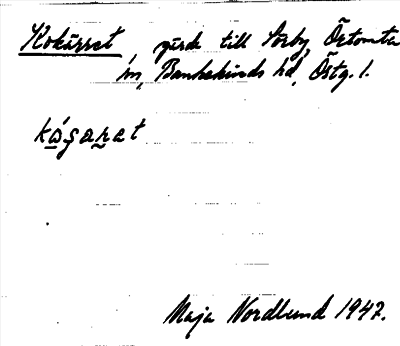 Kokärret, gärde till Sörby, Örtomta
sn, Bankekinds hd, Östg. l.
kώʂaꞃat
Maja Nordlund 1947.